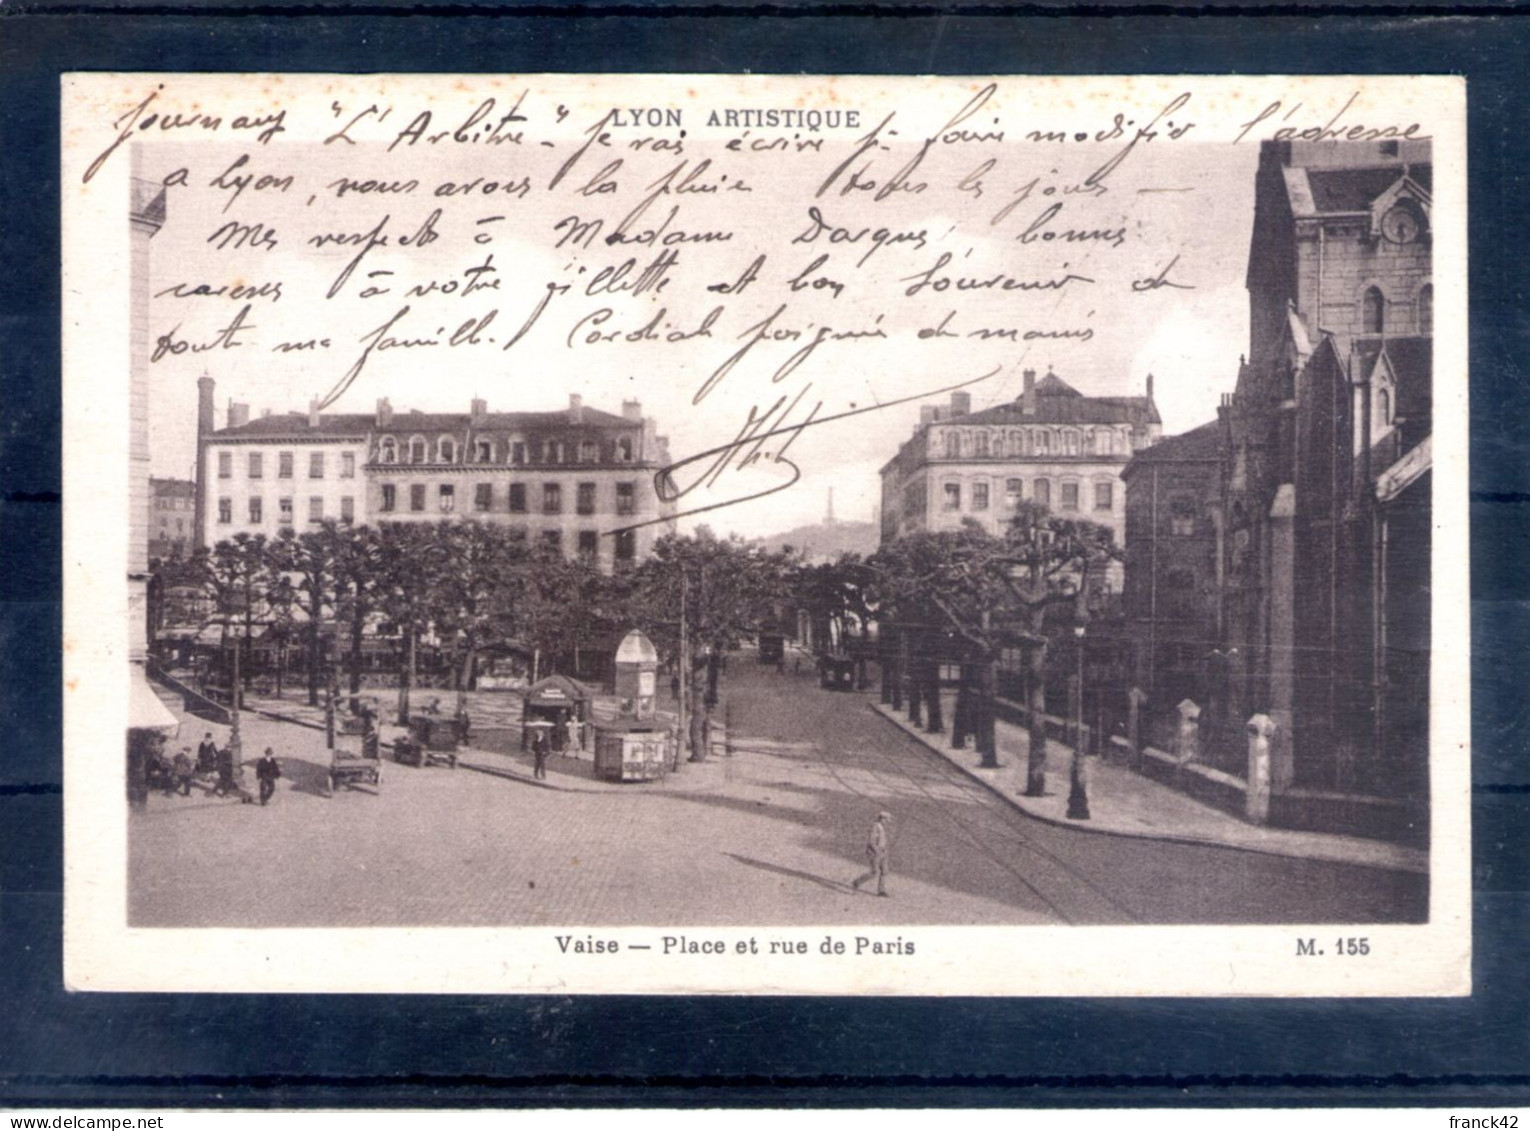 LYON ARTISTIQUE
journaux "L'Arbitre" - Je vais écrire faire modifier l'adresse
a Lyon, nous avons la pluie tous les jours —
Mes respects à Madame Darques, bonnes
caresses à votre fillette et bon Souvenir de
tout ma famille. Cordiale poignée de mains
Vaise — Place et rue de Paris
M. 155
franck42